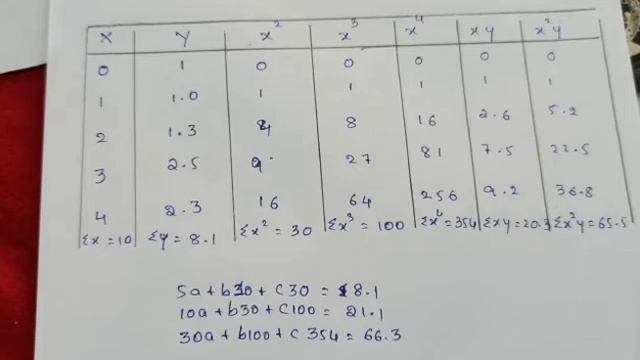 x y x² x³ x⁴ xy x²y
0 1 0 0 0 0 0
1 1.0 1 1 1 1 1
2 1.3 4 8 16 2.6 5.2
3 2.5 9 27 81 7.5 22.5
4 2.3 16 64 256 9.2 36.8
Σx = 10 Σy = 8.1 Σx² = 30 Σx³ = 100 Σx⁴ = 354 Σxy = 20.3 Σx²y = 65.5
5a + b10 + c30 = 8.1
10a + b30 + c100 = 21.1
30a + b100 + c354 = 66.3